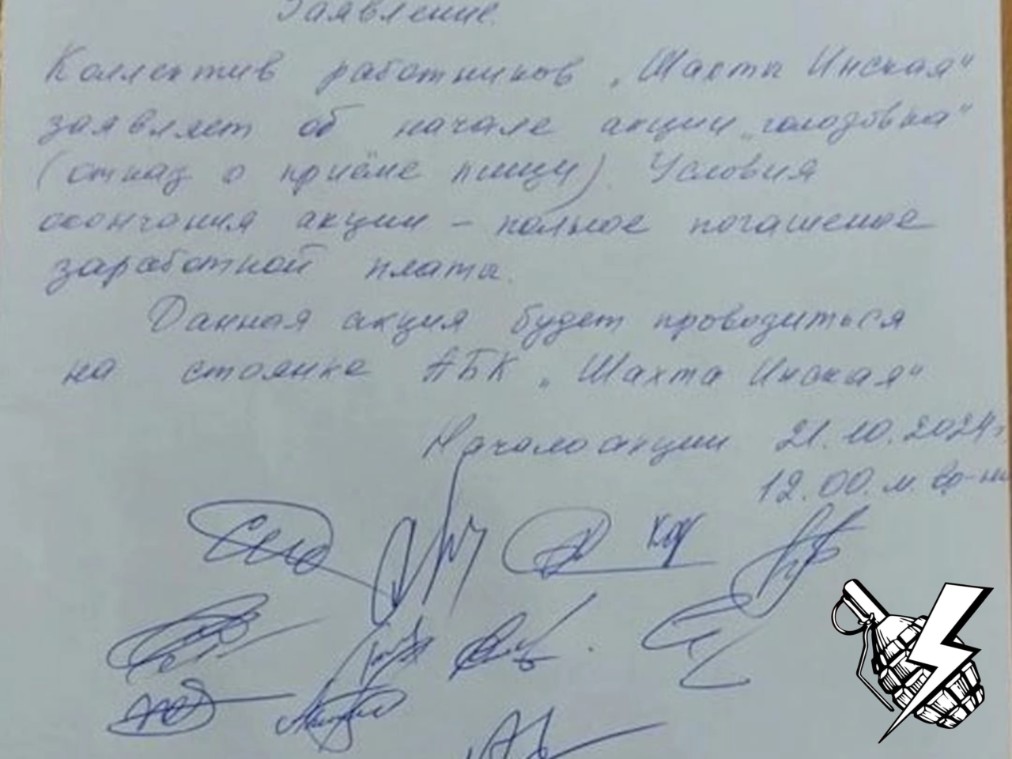 Заявление.
Коллектив работников „Шахты Инская“
заявляет об начале акции „голодовка“
(отказ о приёме пищи). Условия
окончания акции – полное погашение
заработной плата.
Данная акция будет проводиться
на стоянке АБК „Шахта Инская“
Начало акции 21.10.2024г
12.00. м. вр-ни